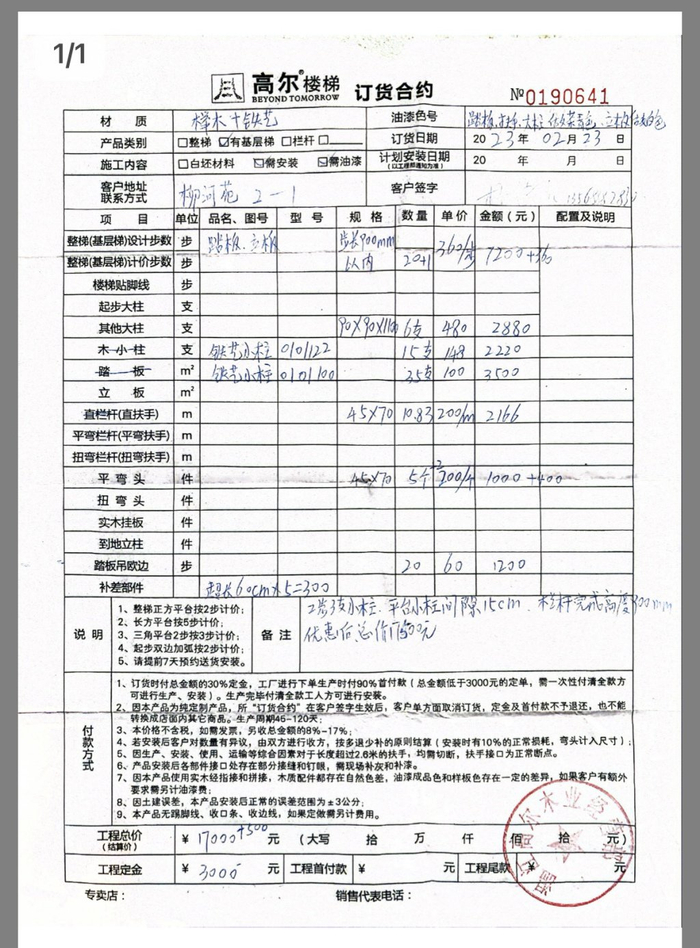 1/1
高尔®楼梯 订货合约 №0190641
BEYOND TOMORROW
材 质 榉木+铁艺 油漆色号
产品类别 □整梯 ☑有基层梯 □栏杆 □ 订货日期 2023年02月23日
施工内容 □白坯材料 ☑需安装 ☑需油漆 计划安装日期 20 年 月 日
(以工程部通知为准)
客户地址 柳河苑 2-1 客户签字
联系方式
项 目 单位 品名、图号 型 号 规 格 数量 单价 金额(元) 配置及说明
整梯(基层梯)设计步数 步 踏板、立板 步长900mm
整梯(基层梯)计价步数 步 以内 20+1 360/步 7200+360
楼梯贴脚线 步
起步大柱 支
其他大柱 支 90X90X1100 6支 480 2880
木小柱 支 铁艺小柱 0101122 15支 148 2220
踏 板 m² 铁艺小柱 0101100 35支 100 3500
立 板 m²
直栏杆(直扶手) m 45X70 10.83 200/m 2166
平弯栏杆(平弯扶手) m
扭弯栏杆(扭弯扶手) m
平 弯 头 件 45X70 5个+2 200/个 1000+400
扭 弯 头 件
实木挂板 件
到地立柱 件
踏板吊欧边 步 20 60 1200
补差部件 超长60cm×5=300
说 明
1、整梯正方平台按2步计价;
2、长方平台按5步计价;
3、三角平台2步按3步计价;
4、起步双边加弧按2步计价;
5、请提前7天预约送货安装。
备 注
2步3支小柱、平台小柱间隙15cm、栏杆完成高度900mm
优惠后总价17500元
付款方式
1、订货时付总金额的30%定金,工厂进行下单生产时付90%首付款(总金额低于3000元的定单,需一次性付清全款方
可进行生产、安装)。生产完毕付清全款工人方可进行安装。
2、因本产品为纯定制产品,所“订货合约”在客户签字生效后,客户单方面取消订货,定金及首付款不予退还,也不能
转换成店面内其它商品。生产周期45-120天;
3、本价格不含税,如需发票,另收总金额的8%-17%;
4、若安装后客户对数量有异议,由双方进行收方,按多退少补的原则结算(安装时有10%的正常损耗,弯头计入尺寸);
5、因生产、安装、使用、运输等综合因素对于长度超过2.6米的扶手,均需切断,扶手接口为正常断点。
6、产品安装后各部件接口处存在部分接缝和钉眼,需现场补灰和补漆。
7、因本产品使用实木经指接和拼接,木质配件都存在自然色差,油漆成品色和样板色存在一定的差异,如果客户有额外
要求需另计油漆费;
8、因土建误差,本产品安装后正常的误差范围为±3公分;
9、本产品无踢脚线、收口条、收边线,如果定做需另计费用。
工程总价 ¥ 17000+500 元 (大写 拾 万 仟 佰 拾 元)
(结算价)
工程定金 ¥ 3000 元 工程首付款 ¥ 元 工程尾款 ¥ 元
专卖店: 销售代表电话: